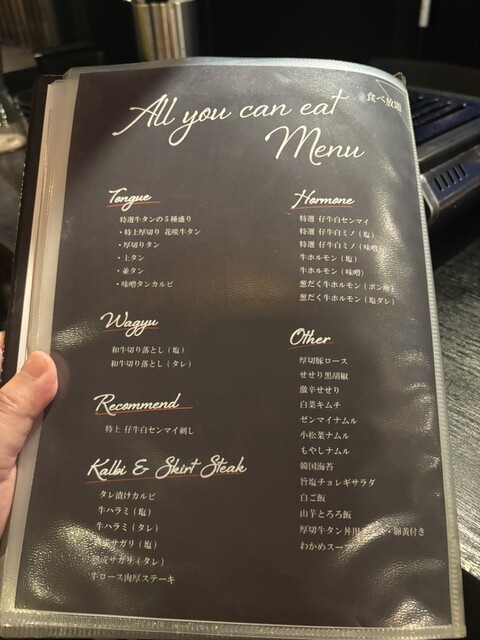 All you can eat
食べ放題
Menu
Tongue
特選牛タンの5種盛り
・特上厚切り 花咲牛タン
・厚切りタン
・上タン
・並タン
・味噌タンカルビ
Wagyu
和牛切り落とし（塩）
和牛切り落とし（タレ）
Recommend
特上 仔牛白センマイ刺し
Kalbi & Skirt Steak
タレ漬けカルビ
牛ハラミ（塩）
牛ハラミ（タレ）
サガリ（塩）
サガリ（タレ）
牛ロース肉厚ステーキ
Hormone
特選 仔牛白センマイ
特選 仔牛白ミノ（塩）
特選 仔牛白ミノ（味噌）
牛ホルモン（塩）
牛ホルモン（味噌）
葱だく牛ホルモン（ポン酢）
葱だく牛ホルモン（塩ダレ）
Other
厚切豚ロース
せせり黒胡椒
激辛せせり
白菜キムチ
ゼンマイナムル
小松菜ナムル
もやしナムル
韓国海苔
旨塩チョレギサラダ
白ご飯
山芋とろろ飯
厚切牛タン丼用 ・卵黄付き
わかめスープ